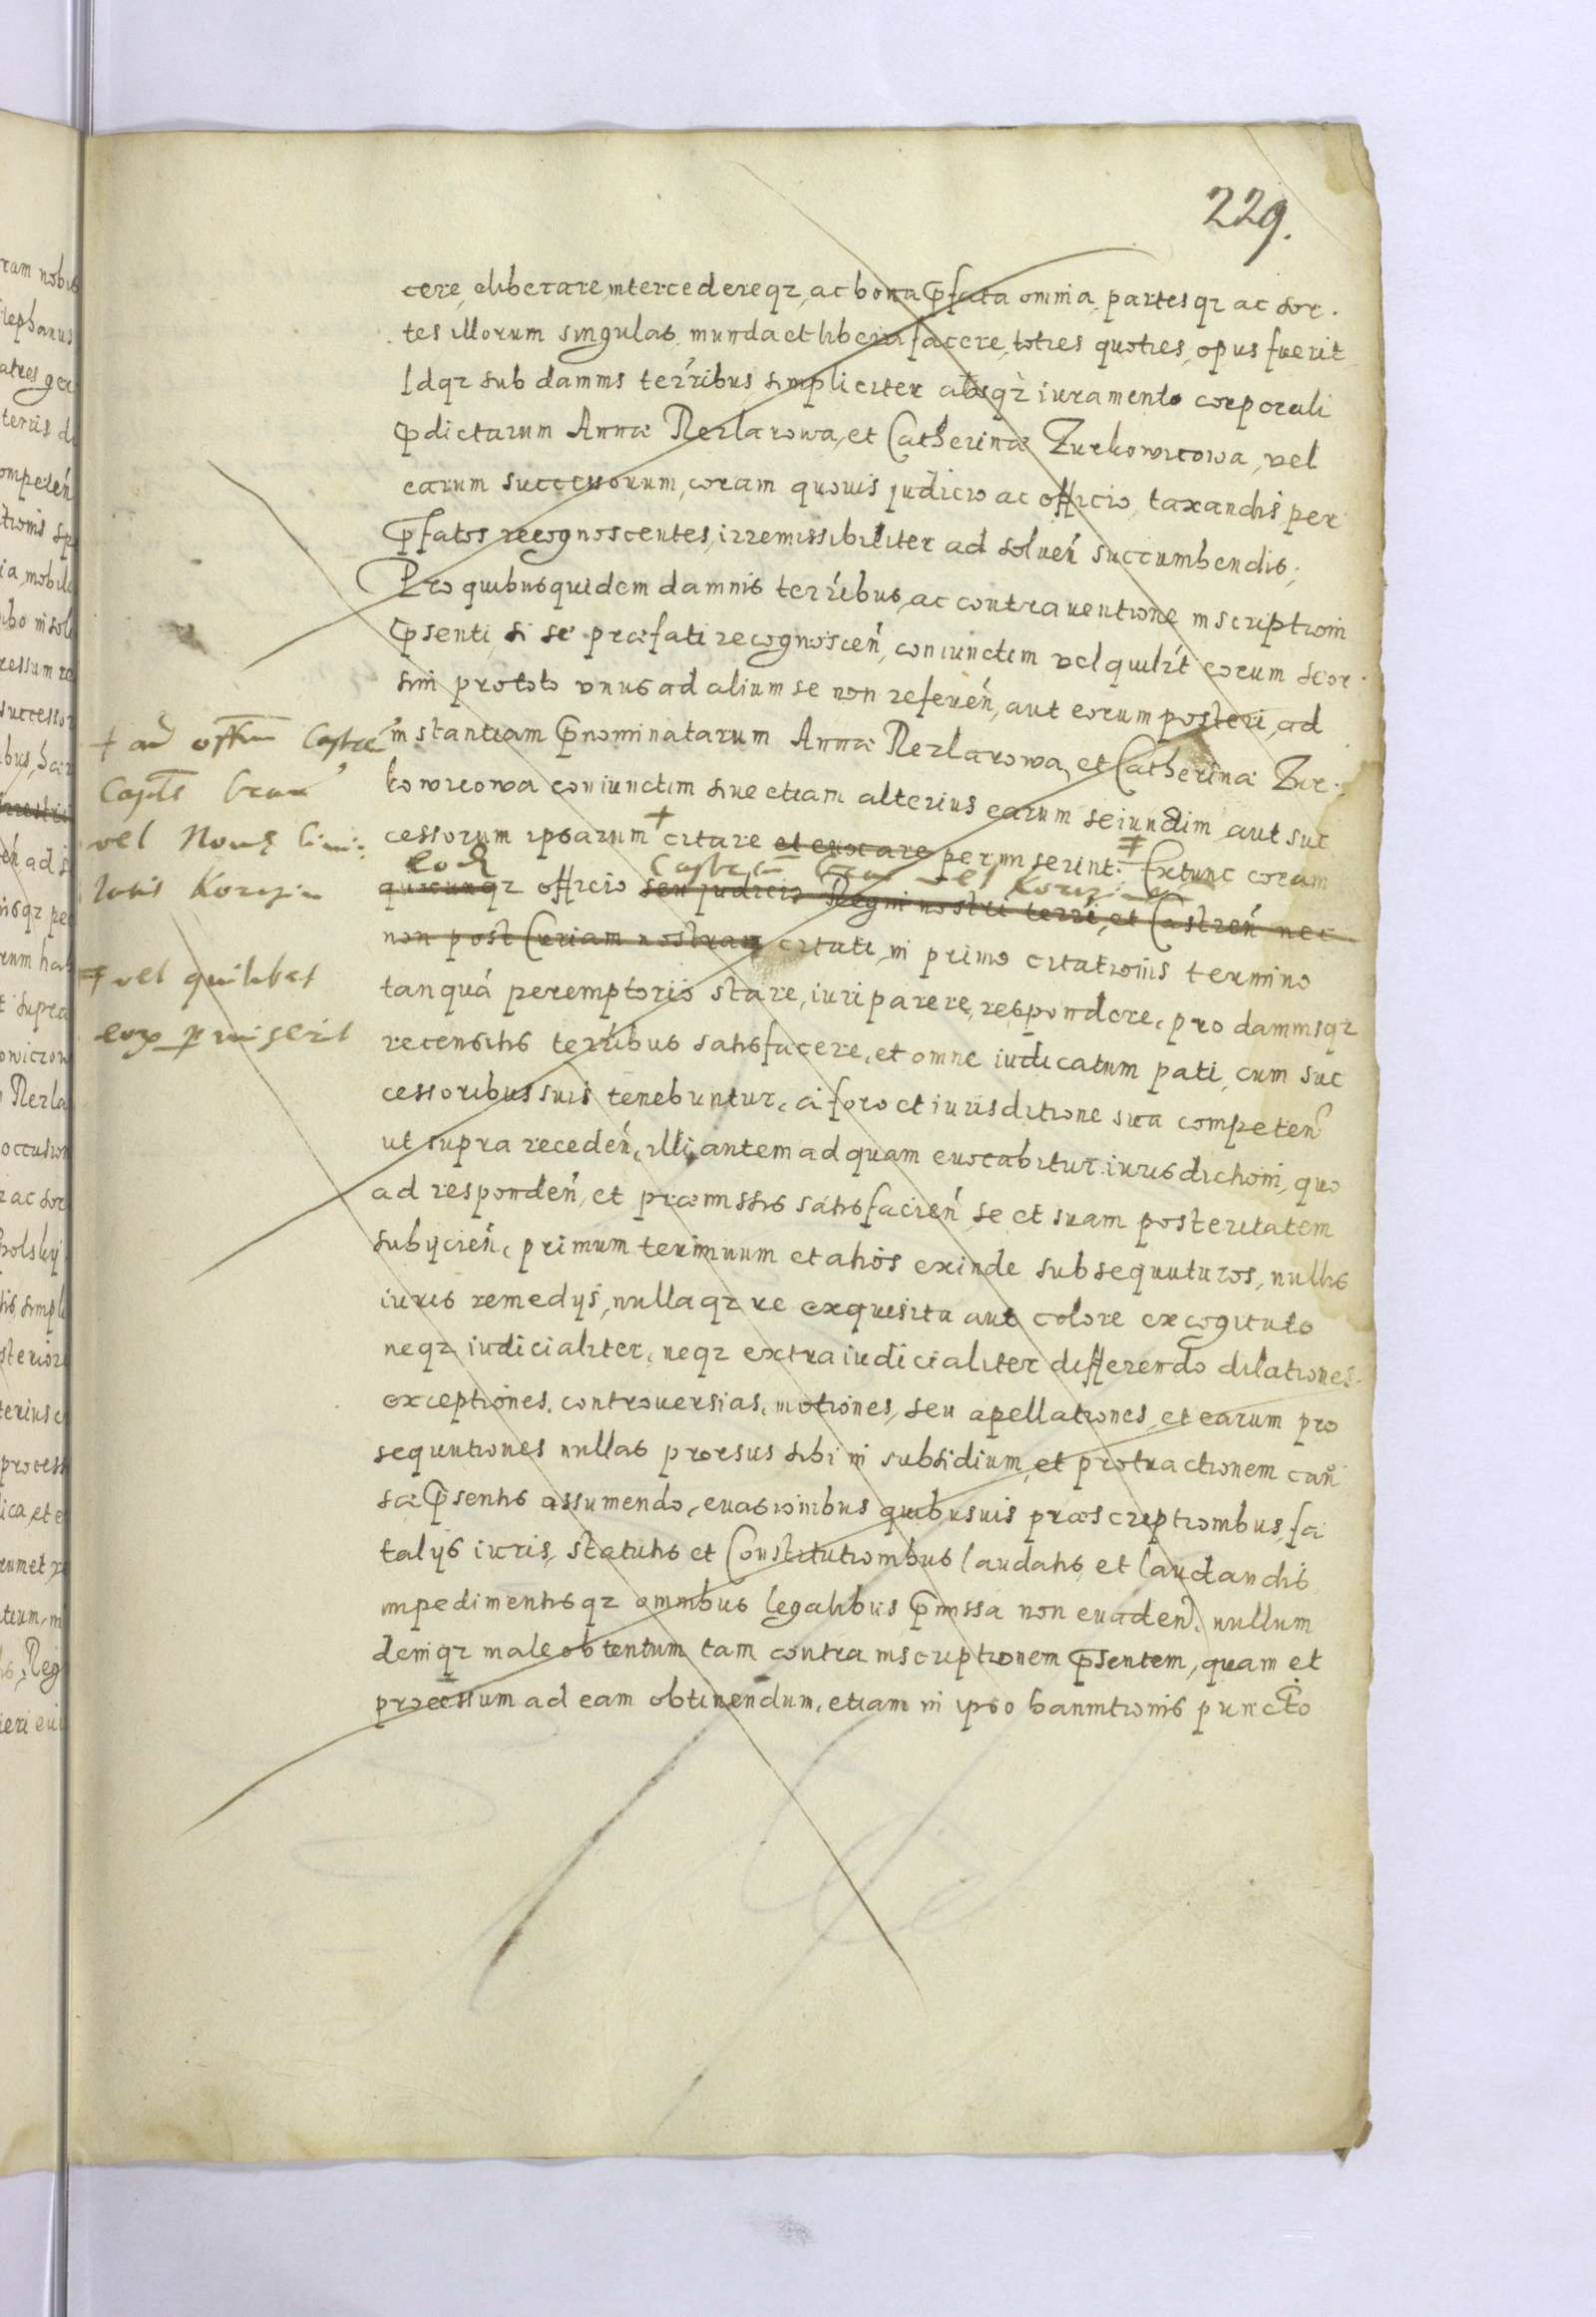 229.
cere, eliberare, intercedereqz, ac bona pfata omnia, partesqz ac sor.
tes illorum singulas, munda et libera facere, toties quoties, opus fuerit
Idqz sub damnis terribus simpliciter absqz iuramento corporali
pdictarum Annæ Rerlarowa, et Catherinæ Zurkowicowa, vel
earum successorum, coram quovis judicio ac officio, taxandis per
pfatos recognoscentes, irremissibiliter ad solueń succumbendis,
Pro quibusquidem damnis terribus, ac contrauentione inscriptioni
psenti, si se præfati recognosceń, coniunctim vel quilit eorum seor
sim pro toto unus ad alium se non refereń, aut eorum posteri, ad
instantiam pnominatarum Annæ Rerlarowa, et Catherinæ Zur:
kowicowa coniunctim siue etiam alterius earum seiunctim aut suc
cessorum ipsarum + citare et euocare permiserint: ‡ Extunc coram
eod Castren vel Korczin
quocunqz officio seu judicio Regni nostri terri, et Castreń nec
non post Curiam nostram citati, in primo citationis termino
tanquá peremptorio stare, iuri parere, respondere, pro damnisqz
recensitis terribus satisfacere, et omne iudicatum pati, cum suc
cessoribus suis tenebuntur, á foro et iurisditione sua competeń
ut supra recedeń, illi autem ad quam euocabitur iurisdictioni, quo
ad respondeń, et præmissis satisfacień se et suam posteritatem
subijcień, primum terminum et alios exinde subsequuturos, nullis
iuris remedijs, nullaqz re exquisita aut colore excogitato
neqz iudicialiter, neqz extraiudicialiter differendo dilationes.
exceptiones, controuersias, motiones, seu apellationes, et earum pro
sequutiones nullas prorsus sibi in subsidium, et protractionem cau
sæ psentis assumendo, euasionibus quibusuis præscriptionibus, fa
talijs iuris, statutis et Constitutionibus laudatis, et laudandis
impedimentisqz omnibus legalibus pmissa non euadeń, nullum
demqz male obtentum tam contra inscriptionem psentem, quam et
processum ad eam obtinendum, etiam in ipso bannitionis puncto
+ ad offm Castre
Capts
vel Nouę Ciui:
tatis Korczin
‡ vel quilibet
eorz pmiserit